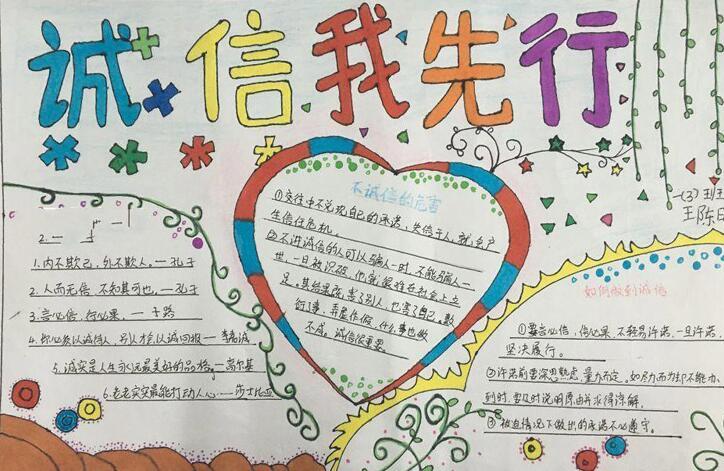 诚信我先行
一(3)班
王陈
2.一
1.内不欺己,外不欺人。一孔子
2.人而无信,不知其可也。一孔子
3.言必信,行必果。一子路
4.你必以诚待人,别人才会以诚回报一李嘉诚
5.诚实是人生永远最美好的品格。一高尔基
6.老老实实最能打动人心。一莎士比亚
不诚信的危害
①交往中不兑现自己的承诺,失信于人,就会产
生信任危机。
②不讲诚信的人可以骗人一时,不能骗人一
世,一旦被识破,他就很难在社会上立
足。其结果既害了别人,也害了自己。敷
衍事,弄虚作假,什么事也做
不成。诚信很重要。
如何做到诚信
①要言必信,行必果,不轻易许诺,一旦许诺,
坚决履行。
②许诺前要深思熟虑,量力而行。如尽力而为却不能办
到时,要及时说明原由并求得谅解。
③被迫情况下做出的承诺不必遵守。